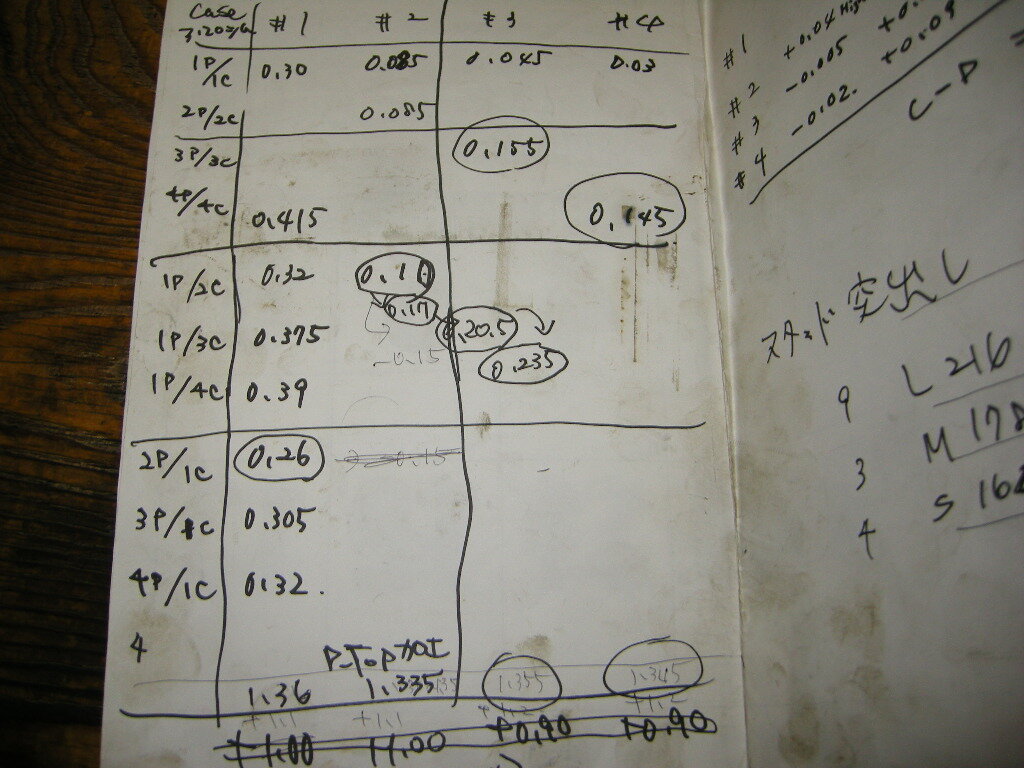 case #1 #2 #3 #4
1P/1C 0.30 0.085 0.045 0.03
2P/2C 0.085
3P/3C 0.155
4P/4C 0.415 0.145
1P/2C 0.32 0.11
0.17
1P/3C 0.375 0.20.5
-0.15 0.235
1P/4C 0.39
2P/1C 0.26 0.15
3P/1C 0.305
4P/1C 0.32.
4
P-Top加工
1.36 1.335 1.355 1.345
+1.1 +1.1 +1.2
+1.00 +1.00 +0.90 +0.90
#1 +0.04 High
#2 -0.005
#3 -0.02. +0.09
#4
C-P =
スタッド突出し
9 L 216
3 M 178
4 S 162